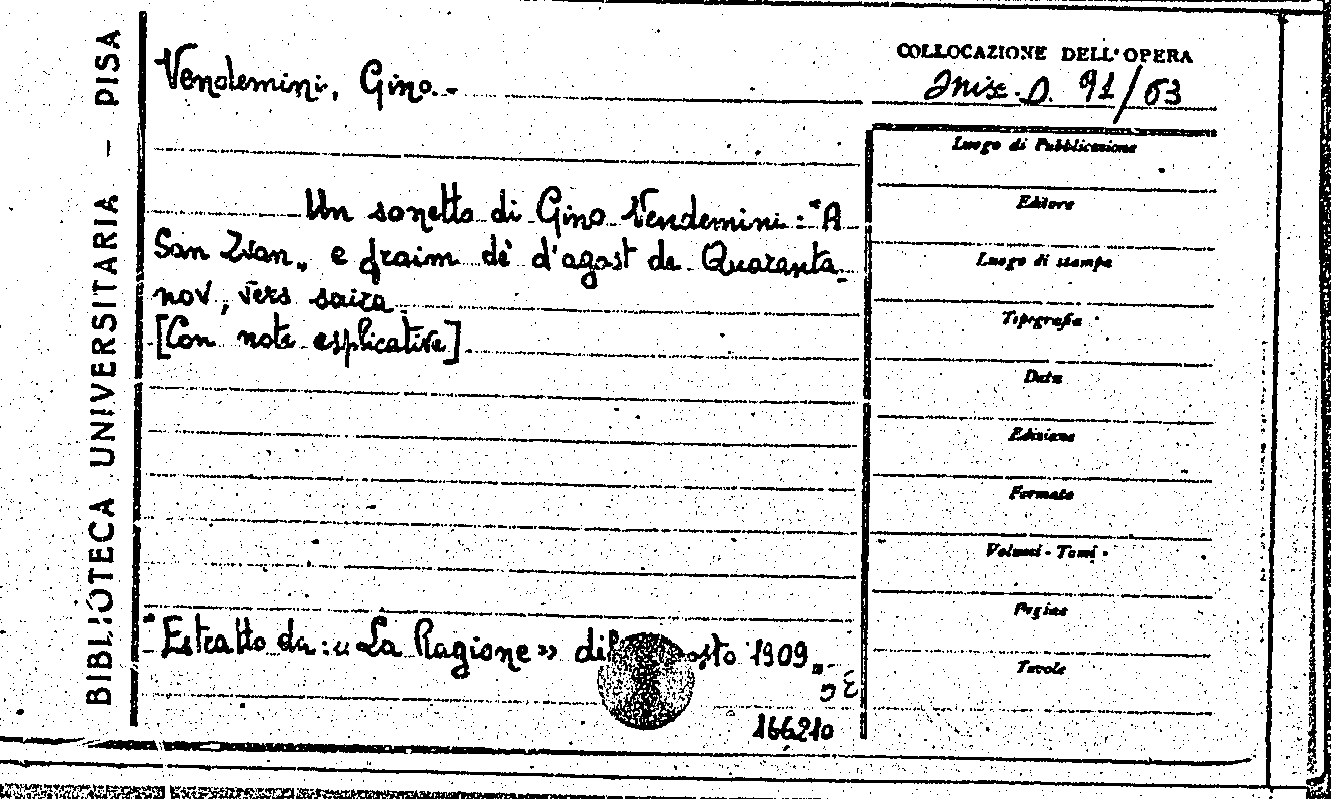 BIBLIOTECA UNIVERSITARIA – PISA
Vendemini, Gino.-
Un sonetto di Gino Vendemini: "A
San Zvan„ e fraim dè d'agost de Quaranta-
nov, vers saira.
[Con note esplicative]
"Estratto da: «La Ragione» osto 1909„
166210
COLLOCAZIONE DELL'OPERA
Misc. D. 91/63
Luogo di Pubblicazione
Editore
Luogo di stampa
Tipografia
Data
Edizione
Formato
Volumi - Tomi
Pagine
Tavole